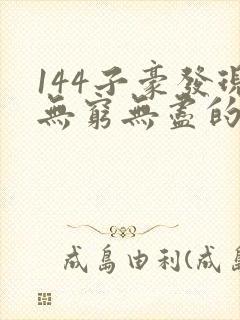 144子豪發現
無窮無盡的
成島由利(成島